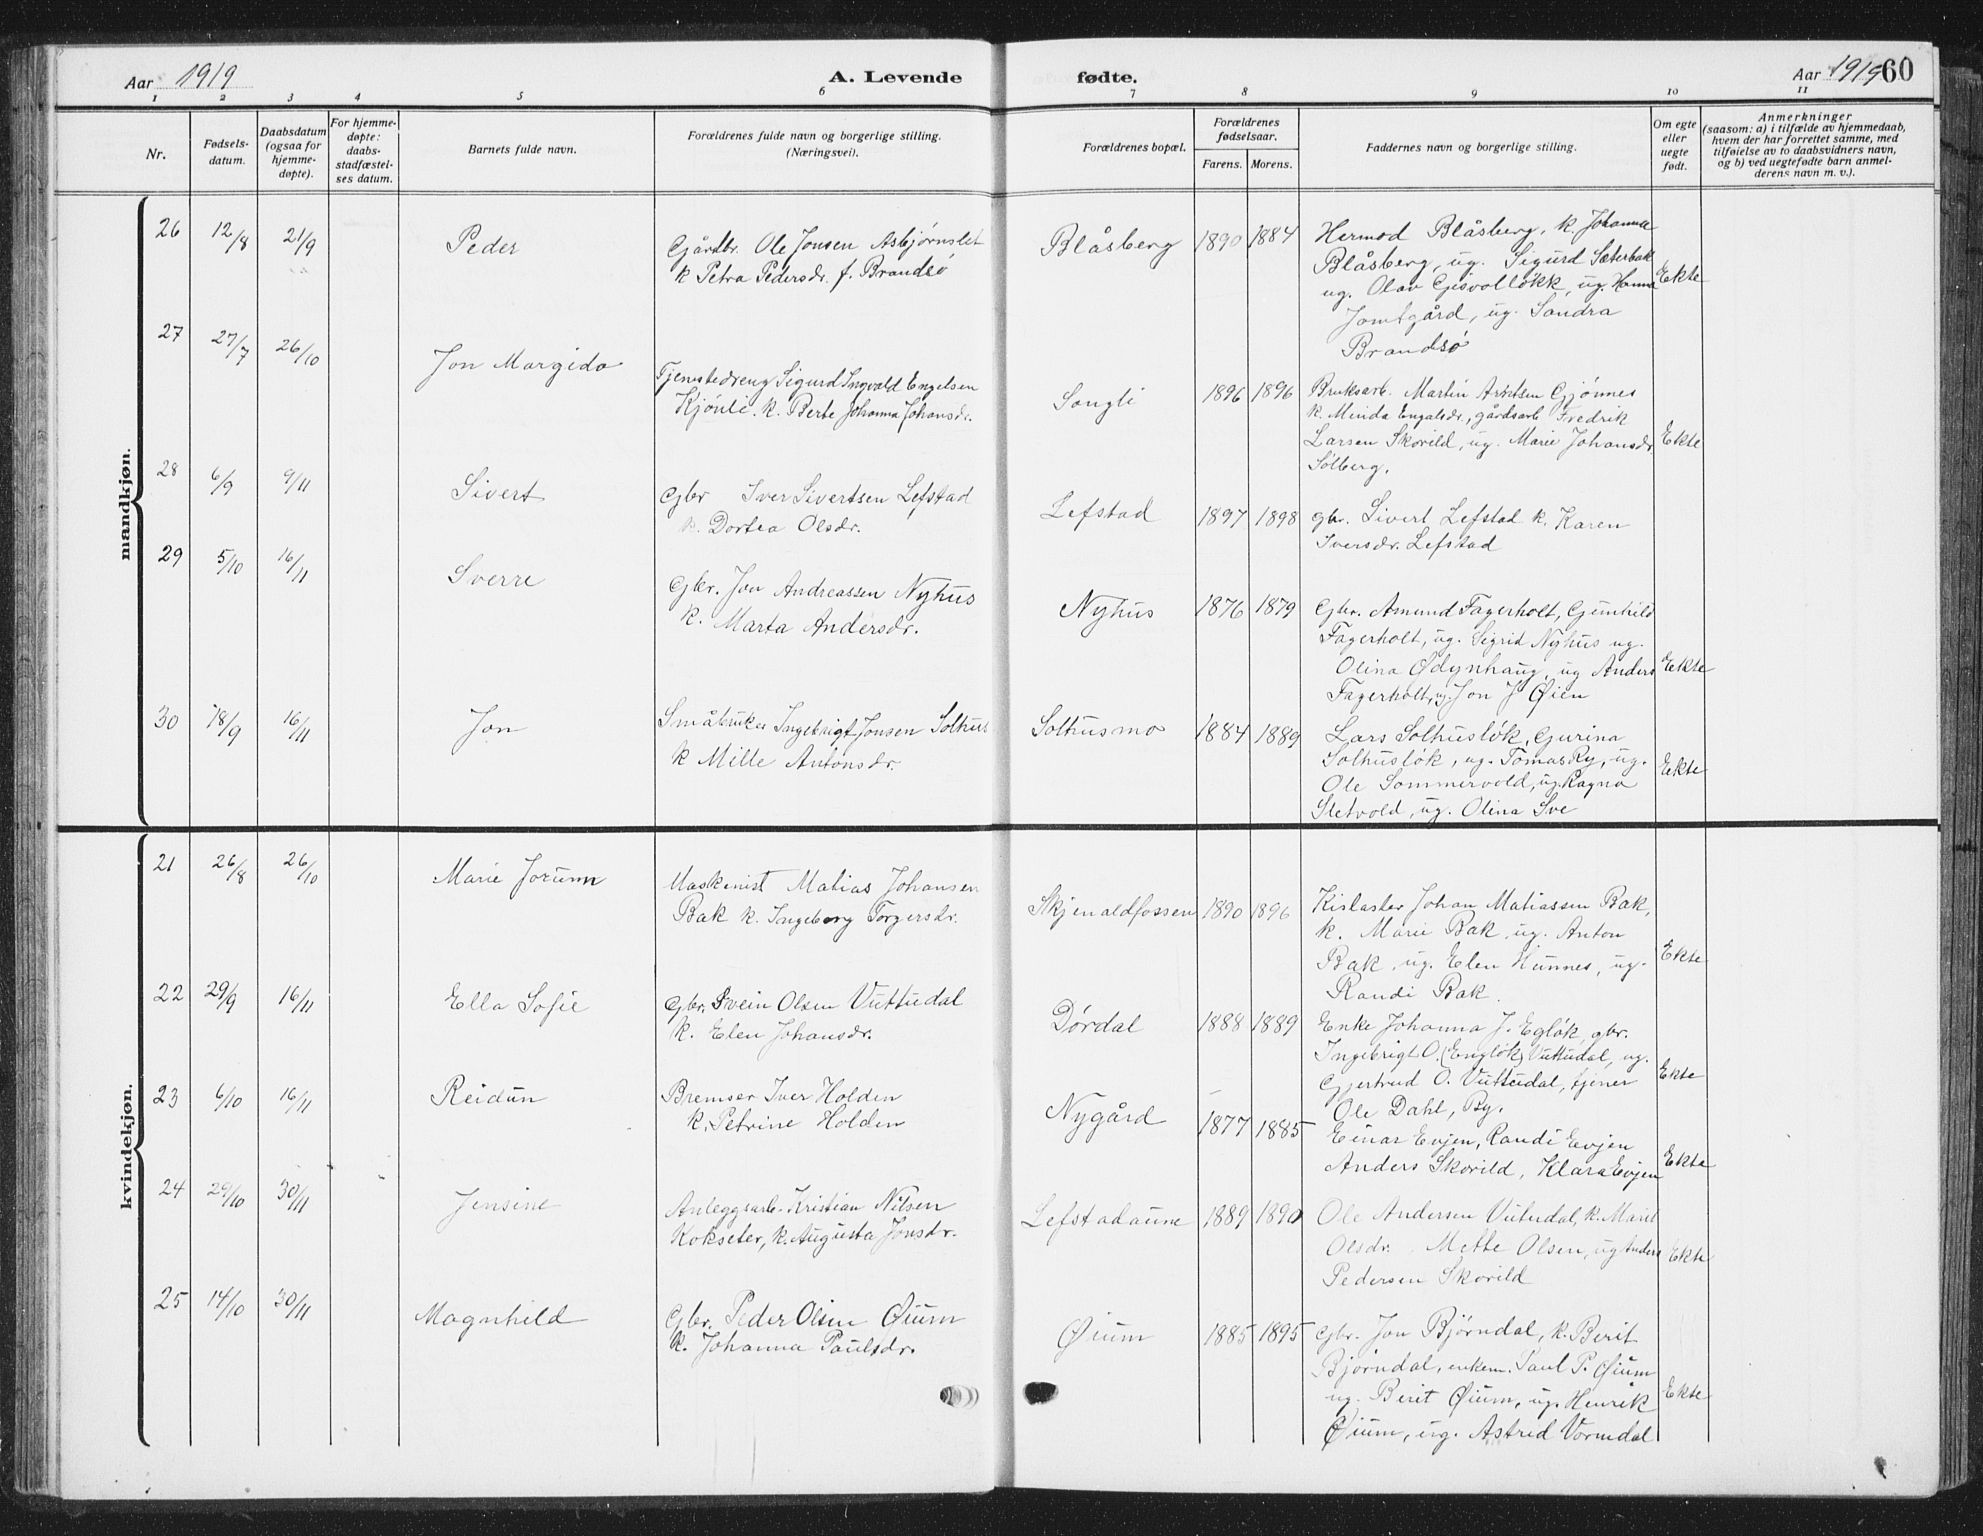 Aar 1919 A. Levende fødte. Aar 1919 60
1 2 3 4 5 6 7 8 9 10 11
Nr.
Fødsels-
datum.
Daabsdatum
(ogsaa for
hjemme-
døpte).
For hjemme-
døpte:
daabs-
stadfæstel-
ses datum.
Barnets fulde navn.
Forældrenes fulde navn og borgerlige stilling.
(Næringsvei).
Forældrenes bopæl.
Forældrenes
fødselsaar.
Farens. Morens.
Faddernes navn og borgerlige stilling.
Om egte
eller
uegte
født.
Anmerkninger
(saasom: a) i tilfælde av hjemmedaab,
hvem der har forrettet samme, med
tilføielse av to daabsvidners navn,
og b) ved uegtefødte barn anmel-
derens navn m. v.).
mandkjøn.
26 12/8 21/9 Peder
Gårdbr. Ole Jonsen Asbjørnslet
k Petra Pedersdr. f. Brandsø
Blåsberg 1890 1884
Hermod Blåsberg, k. Johanna
Blåsberg, ug. Sigurd Sæterbak
ug. Olav Gisvolløkk, ug. Hanna
Jomtgård, ug. Sandra
Brandsø
Ekte
27 27/7 26/10 Jon Margido
Tjenestedreng Sigurd Ingvald Engelsen
Kjønli. k. Berte Johanna Johansdr.
Songli 1896 1896
Bruksarb. Martin Arntsen Gjønnes
k. Minda Engalsdr, gårdsarb Fredrik
Larsen Skorild, ug. Marie Johansdr
Sølberg.
Ekte
28 6/9 9/11 Sivert
Gbr Iver Sivertsen Lefstad
k. Dortea Olsdr.
Lefstad 1897 1898
gbr. Sivert Lefstad k. Karen
Iversdr. Lefstad
29 5/10 16/11 Sverre
Gbr. Jon Andreassen Nyhus
k. Marta Andersdr.
Nyhus 1876 1879
Gbr. Amund Fagerholt, Gunhild
Fagerholt, ug. Sigrid Nyhus ug.
Olina Ødynhaug, ug Anders
Fagerholt, ug. Jon J Øien
Ekte
30 18/9 16/11 Jon
Småbruker Ingebrigt Jonsen Solhus
k Mille Antonsdr.
Solhusmo 1884 1889
Lars Solhusløk, Gurina
Solhusløk, ug. Tomas Ry, ug.
Ole Sommervold, ug. Ragna
Sletvold, ug. Olina Sve
Ekte
kvindekjøn.
21 26/8 26/10 Marie Jorunn
Maskinist Matias Johansen
Bak k. Ingeborg Torgersdr.
Skjenaldfossen 1890 1896
Kislaster Johan Matiassen Bak,
k. Marie Bak, ug. Anton
Bak, ug. Elen Hunnes, ug.
Randi Bak.
Ekte
22 29/9 16/11 Ella Sofie
Gbr. Svein Olsen Vuttudal
k. Elen Johansdr.
Dørdal 1888 1889
Enke Johanna J. Egløk, gbr.
Ingebrigt O. (Engløk) Vuttudal, ug.
Gjertrud O. Vuttudal, tjener
Ole Dahl, By.
Ekte
23 6/10 16/11 Reidun
Bremser Iver Holden
k. Petrine Holden
Nygård 1877 1885
Einar Evjen, Randi Evjen
Anders Skorild, Klara Evjen
Ekte
24 29/10 30/11 Jensine
Anleggsarb. Kristian Nilsen
Kokseter, k. Augusta Jonsdr.
Lefstadaune 1889 1890
Ole Andersen Vutudal, k. Marit
Olsdr. Mette Olsen, ug Anders
Pedersen Skorild
Ekte
25 14/10 30/11 Magnhild
Gbr. Peder Olsen Øium
k. Johanna Paulsdr.
Øium 1885 1895
Gbr. Jon Bjørndal, k. Berit
Bjørndal, enkem. Paul P. Øium
ug. Berit Øium, ug. Henrik
Øium, ug. Astrid Vormdal
Ekte